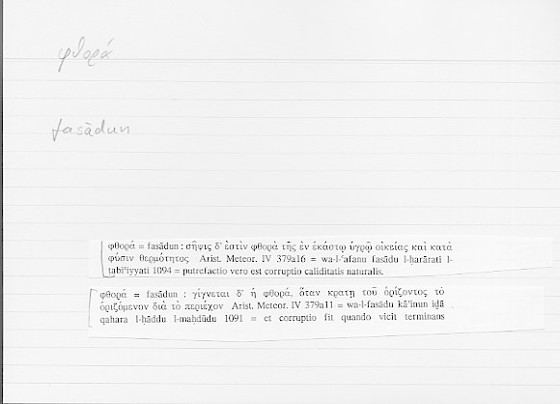 φθορά
fasādun
φθορά = fasādun : σῆψις δ' ἐστὶν φθορὰ τῆς ἐν ἑκάστῳ ὑγρῷ οἰκείας καὶ κατὰ
φύσιν θερμότητος Arist. Meteor. IV 379a16 = wa-l-ʿafanu fasādu l-ḥarārati l-
ṭabīʿiyyati 1094 = putrefactio vero est corruptio caliditatis naturalis.
φθορά = fasādun : γίγνεται δ' ἡ φθορά, ὅταν κρατῇ τοῦ ὁρίζοντος τὸ
ὁριζόμενον διὰ τὸ περιέχον Arist. Meteor. IV 379a11 = wa-l-fasādu kāʾinun iḏā
qahara l-ḥāddu l-maḥdūdu 1091 = et corruptio fit quando vicit terminans